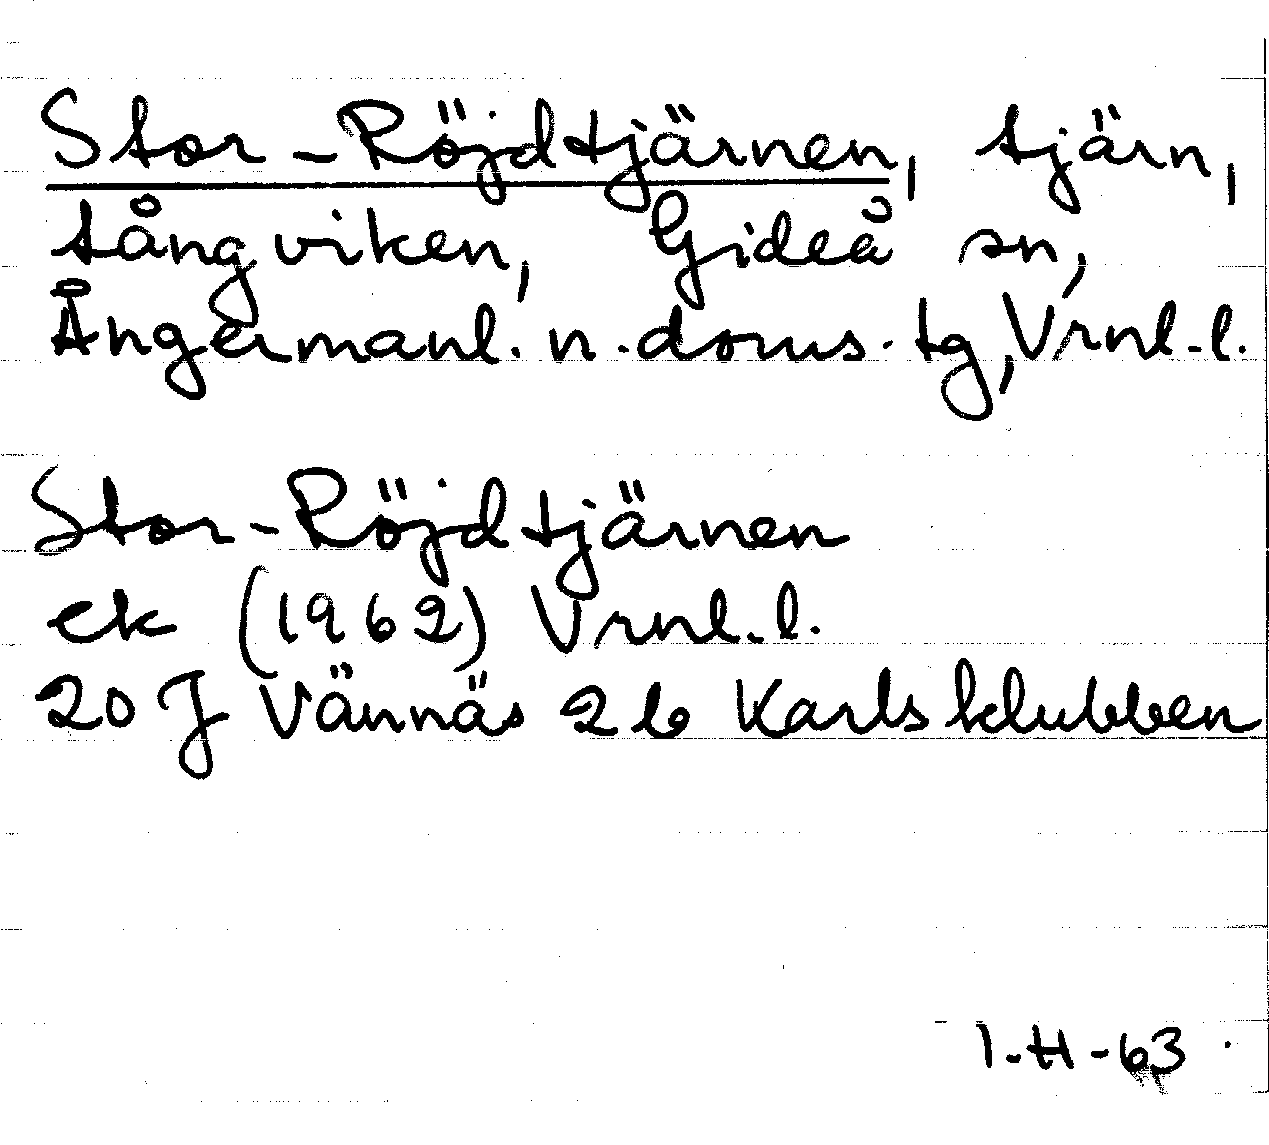 Stor-Röjdtjärnen, tjärn,
tångviken, Gideå sn,
Ångermanl. n. doms. tg, Vrnl.l.
Stor-Röjdtjärnen
ek (1962) Vrnl.l.
20 J Vännäs 2b Karlsklubben
1-H-63